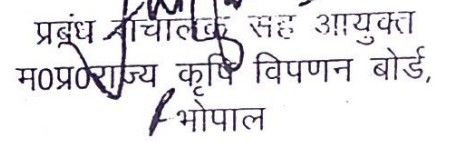 प्रबंध संचालक सह आयुक्त
म0प्र0राज्य कृषि विपणन बोर्ड,
भोपाल